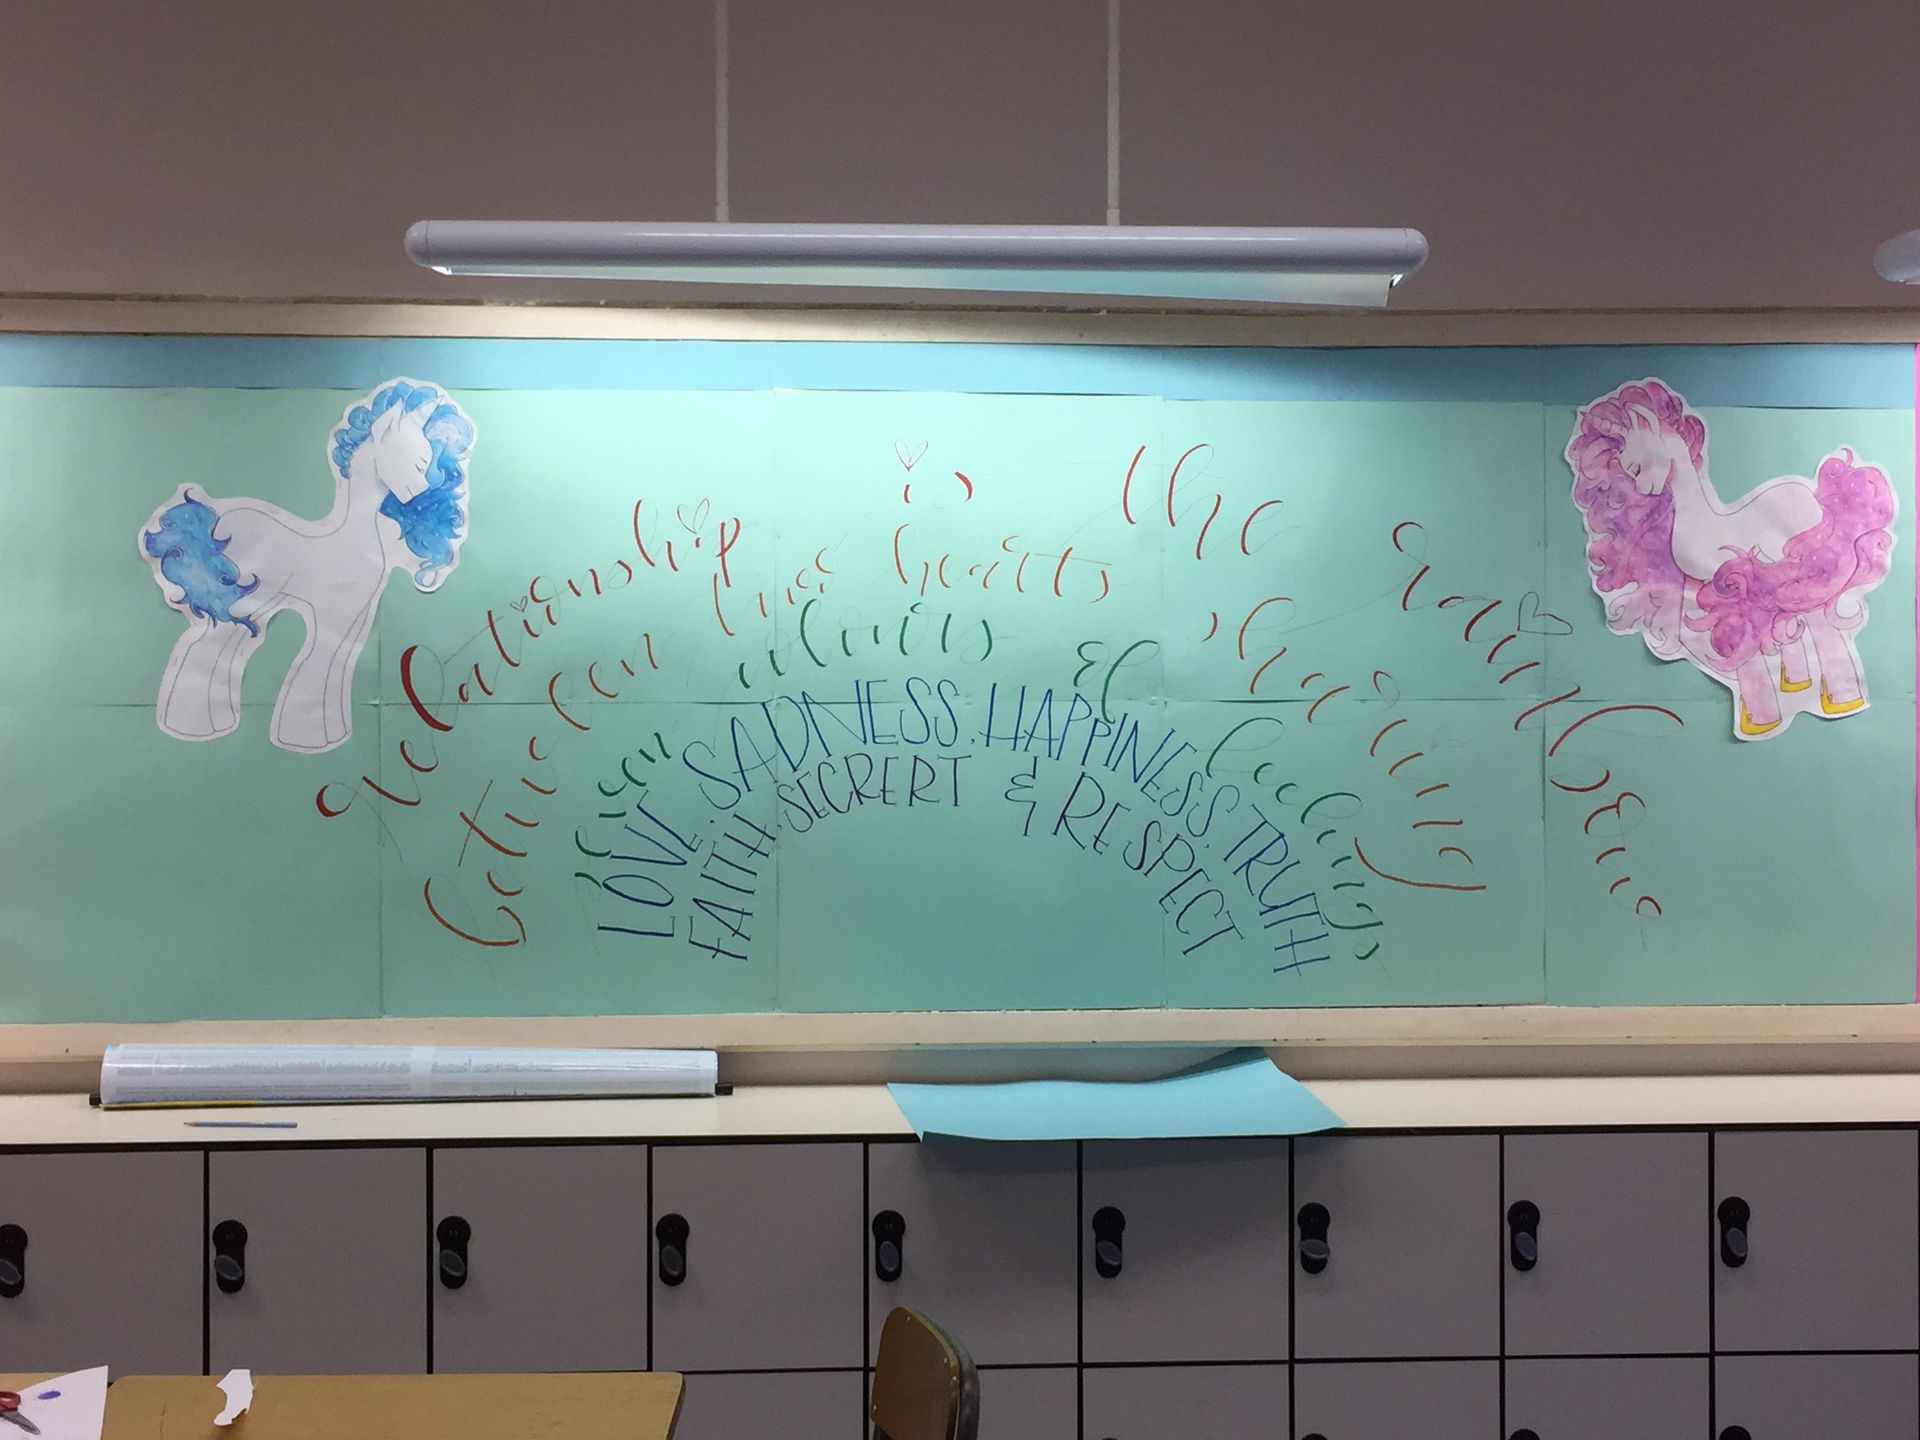 relationship is the rainbow
between two hearts sharing
seven colours of feeling,
LOVE, SADNESS, HAPPINESS, TRUTH
FAITH, SECRERT & RESPECT